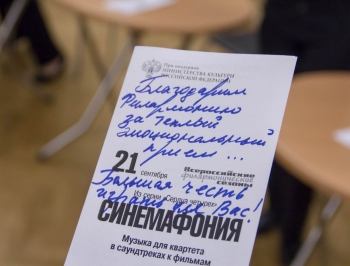 При поддержке
МИНИСТЕРСТВА КУЛЬТУРЫ
РОССИЙСКОЙ ФЕДЕРАЦИИ
Благодарим
Филармонию
за теплый
эмоциональный
прием...
21
сентября
Всероссийские
филармонические
сезоны
Из серии «Сердца четырех»
Большая честь
играть для Вас!
СИНЕМАФОНИЯ
Музыка для квартета
в саундтреках к фильмам